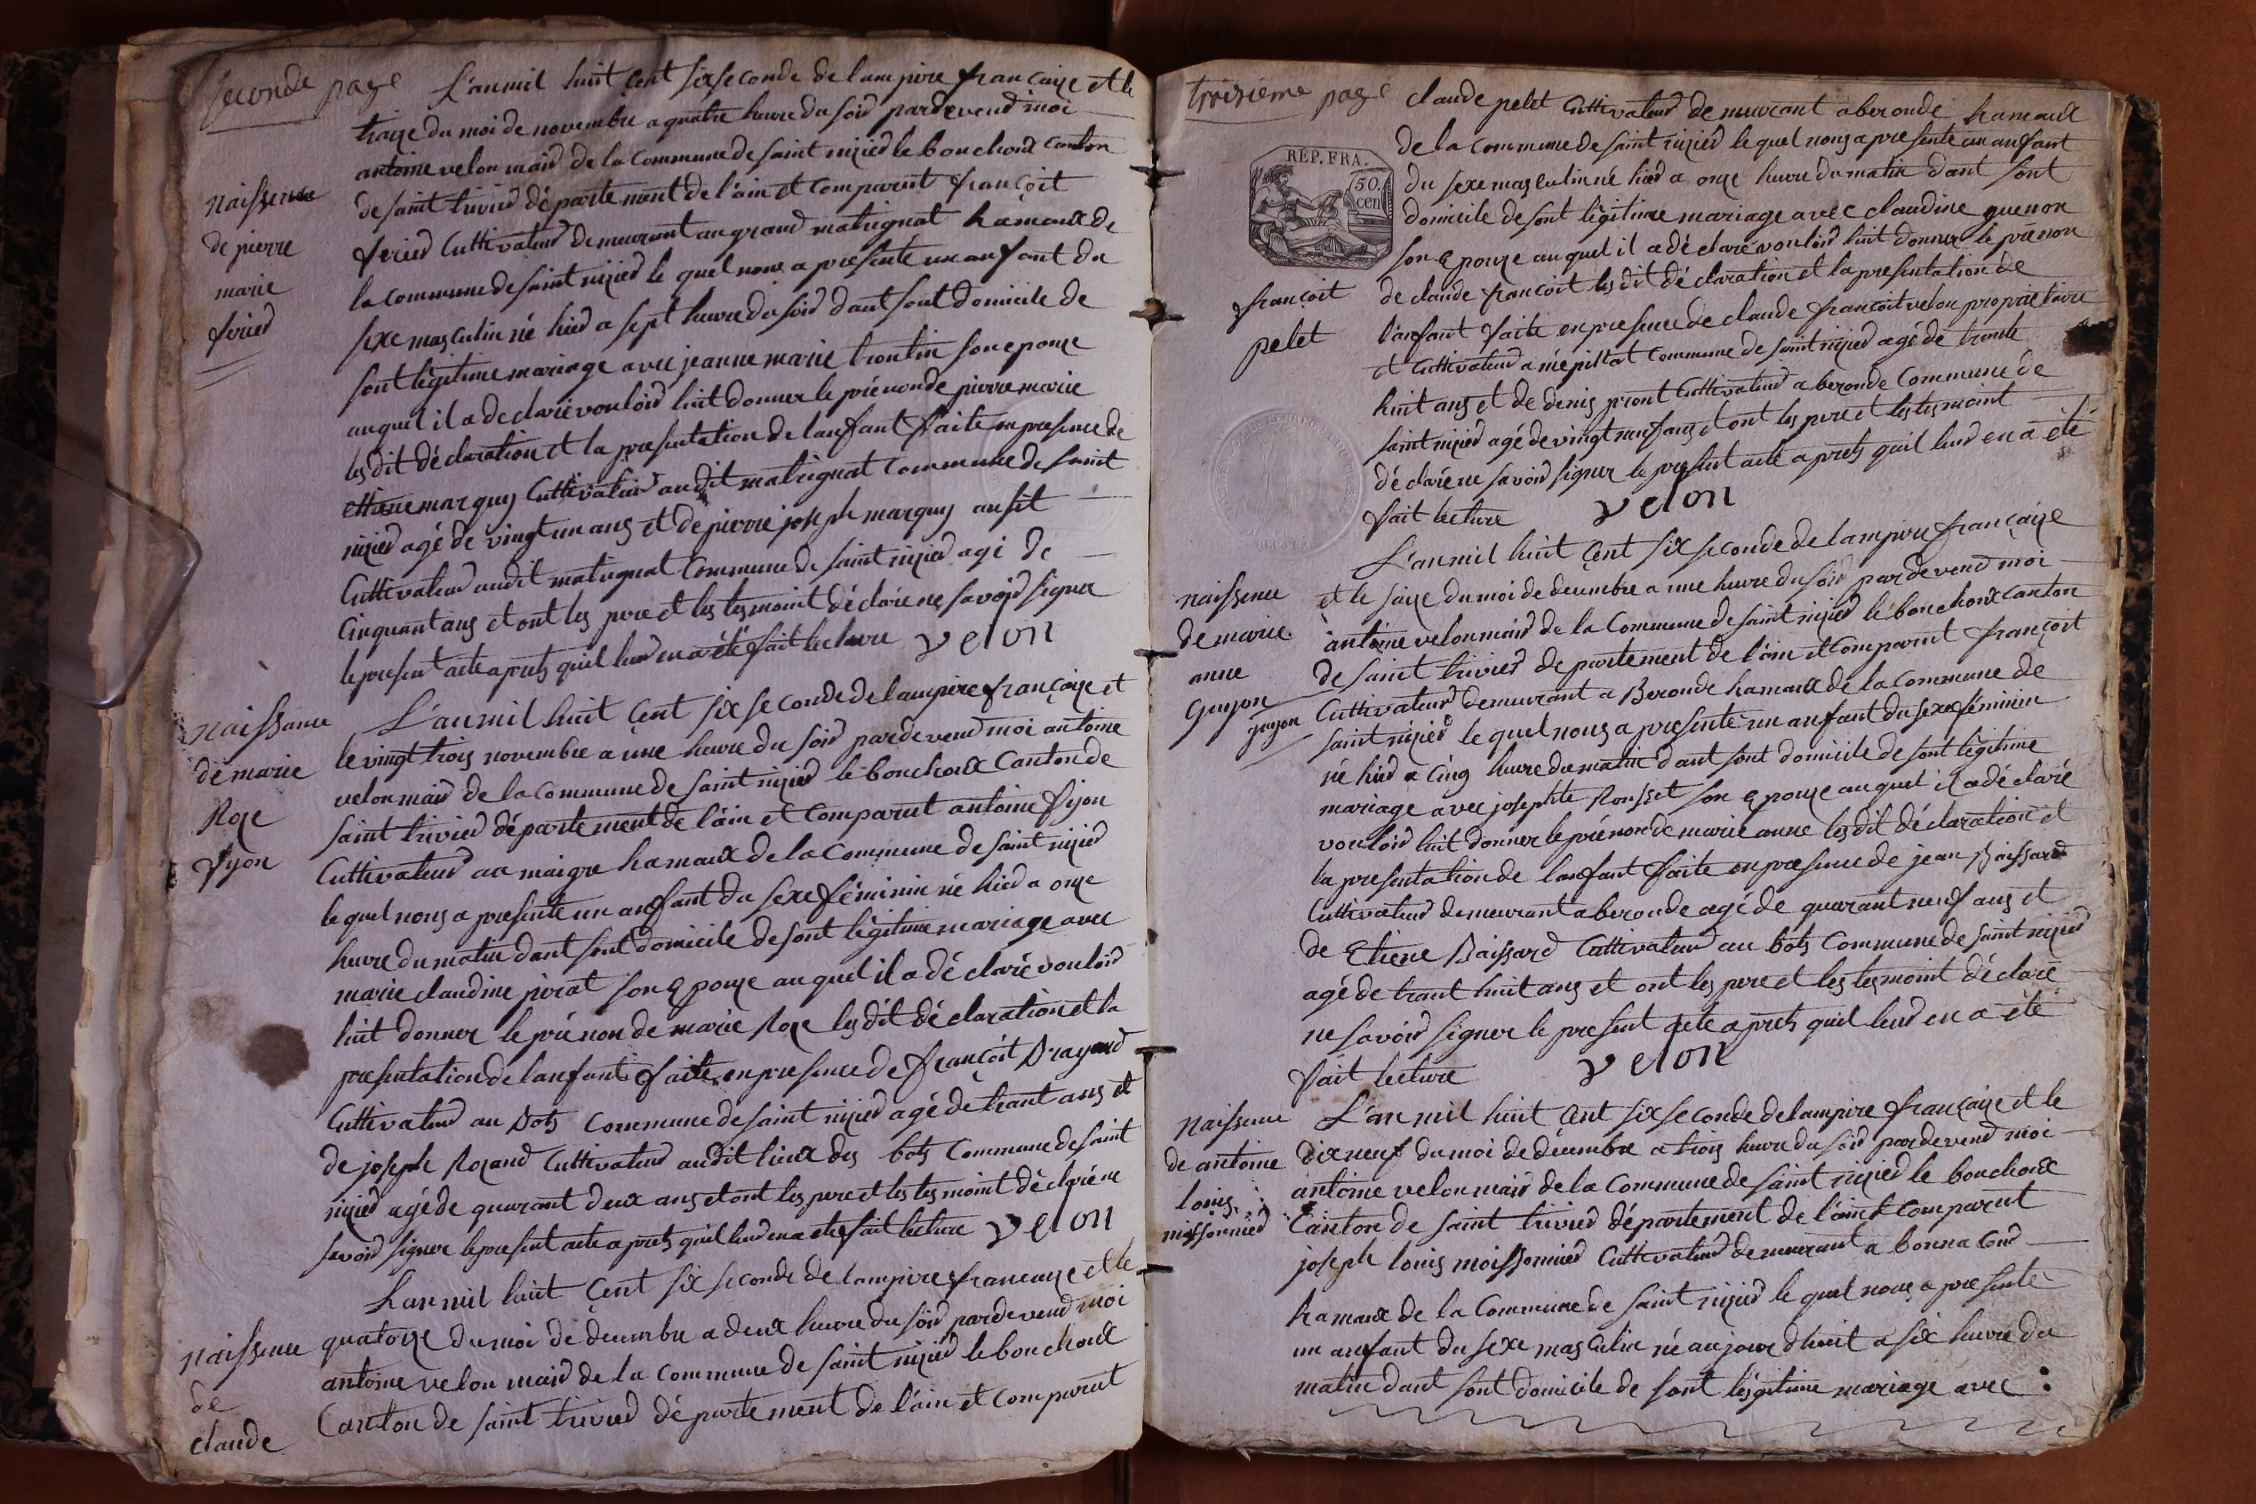 seconde page
L'an mil huit cent six seconde de lampire française et le
traize du moi de novembre a quatre heure du soir pardevend moi
antoine velon maid de la Commune de saint nizied le bouchoux canton
de saint trivied département de l'ain et comparut françoit
feried Cuttivateur demeurant au grand matrignat hamaux de
la commune de saint nizied le quel nous a presenté un anfant du
sexe masculin né hied a sept heure du soir dant sont domicile de
sont légitime mariage avec jeanne marie trontin son epouze
auquel il a déclaré vouloir luit donner le prénon de pierre marie
les dit déclaration et la presentation de lanfant faite en presence de
ettiene marguy Cuttivateur audit matrignat Commune de saint
nizied agé de vingt un ans et de pierre joseph marguy ausit
Cuttivateur audit matrignat Commune de saint nizied agé de
Cinquant ans et ont les pere et les tesmoint déclaré ne savoir signer
le present acte aprets quil leur en a été fait lecture velon
naissence
de pierre
marie
feried
L'an mil huit Cent six seconde de lampire française et
le vingt trois novembre a une heure du soir pardevend moi antoine
velon maid de la commune de saint nizied le bouchoux Canton de
saint trivied département de l'ain et Comparut antoine fyon
Cuttivateur au maigre hamaux de la Commune de saint nizied
le quel nous a presenté un anfant du sexe féminin né hied a onze
heure du matin dant sont domicile de sont légitime mariage avec
marie claudine pirat son epouze auquel il a déclaré vouloir
luit donner le prénon de marie Roze les dit déclaration et la
presentation de lanfant faite en presence de françoit Drayard
Cuttivateur au Bots Commune de saint nizied agé de trant ans et
de joseph Rozand Cuttivateur audit lieux des bots Commune de saint
nizied agé de quarant deux ans et ont les pere et les tesmoint déclaré ne
savoir signer le present acte aprets quil leur en a été fait lecture velon
naissance
de marie
Roze
fyon
L'an mil huit Cent six seconde de lampire française et le
quatorze du moi de décembre a deux heure du soir pardevend moi
antoine velon maid de la commune de saint nizied le bouchoux
Canton de saint trivied département de l'ain et comparut
naissence
de
claude
troisieme page
claude pelet Cuttivateur demeurant a beronde hamaux
de la commune de saint nizied le quel nous a presenté un anfant
du sexe masculin né hied a onze heure du matin dant sont
domicile de sont légitime mariage avec claudine guenon
son epouze auquel il a déclaré vouloir luit donner le prénon
de claude françoit les dit déclaration et la presentation de
l'anfant faite en presence de claude françoit velon proprietaire
et Cuttivateur a mépillat Commune de saint nizied agé de trante
huit ans et de denis pront Cuttivateur a beronde Commune de
saint nizied agé de vingt neuf ans et ont les pere et les tesmoint
déclaré ne savoir signer le present acte aprets quil leur en a été
fait lecture velon
REP. FRA.
50.
cen
françoit
pelet
L'an mil huit Cent six seconde de lampire française
et le saize du moi de décembre a une heure du soir pardevend moi
antoine velon maid de la Commune de saint nizied le bouchoux canton
de saint trivied département de l'ain et Comparut françoit
guyon Cuttivateur demeurant a Beronde hamaux de la Commune de
saint nizied le quel nous a presenté un anfant du sexe féminin
né hied a Cinq heure du matin dant sont domicile de sont légitime
mariage avec josephte Rousset son epouze auquel il a déclaré
vouloir luit donner le prénon de marie anne les dit déclaration et
la presentation de lanfant faite en presence de jean Baissard
Cuttivateur demeurant a beronde agé de quarant neuf ans et
de Etiene Baissard Cuttivateur au bots Commune de saint nizied
agé de trant huit ans et ont les pere et les tesmoint déclaré
ne savoir signer le present acte aprets quil leur en a été
fait lecture velon
naissence
de marie
anne
guyon
L'an mil huit Cent six seconde de lampire française et le
dix neuf du moi de décembre a trois heure du soir pardevend moi
antoine velon maid de la Commune de saint nizied le bouchoux
Canton de saint trivied département de l'ain et Comparut
joseph louis moissonnied Cuttivateur demeurant a bonna Cour
hamaux de la Commune de saint nizied le quel nous a presenté
un anfant du sexe masculin né aujourdhuit a six heure du
matin dant sont domicile de sont légitime mariage avec
naissence
de antoine
louis
moissonnied